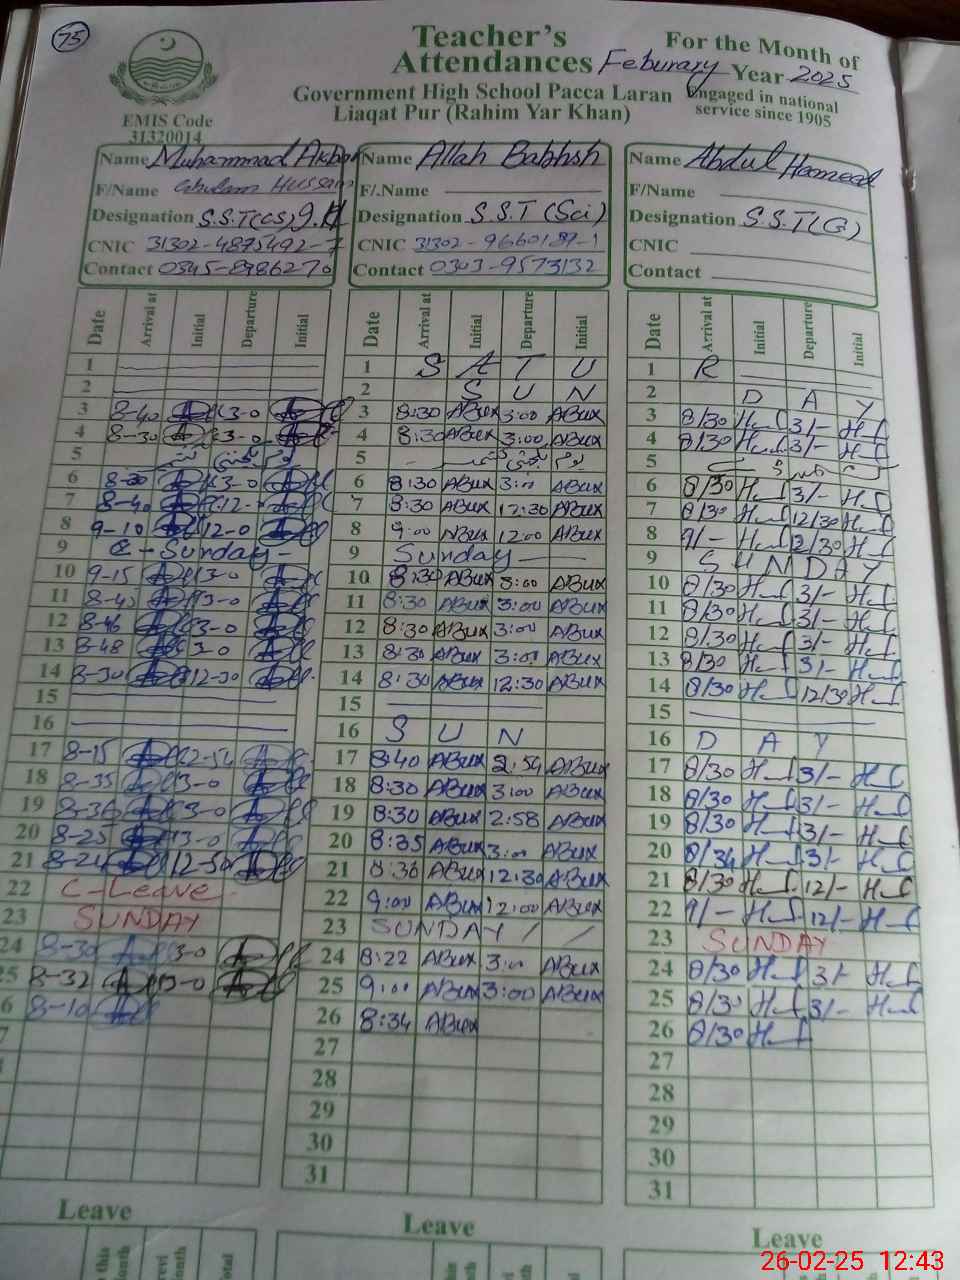 75
Teacher's
Attendances
For the Month of
Feburary Year 2025
Government High School Pacca Laran
Liaqat Pur (Rahim Yar Khan)
Engaged in national
service since 1905
EMIS Code
31320014
Name Muhammad Akbar
F/Name Ghulam Hussain
Designation S.S.T(CS)
CNIC 31302-4875492-7
Contact 0345-8986270
Name Allah Bakhsh
F/.Name
Designation S.S.T (Sci)
CNIC 31302-9660187-1
Contact 0303-9573132
Name Abdul Hameed
F/Name
Designation S.S.T(G)
CNIC
Contact
Date Arrival at Initial Departure Initial
1
2
3 8-40 3-0
4 8-30 3-0
5 یوم یکجہتی کشمیر
6 8-30 3-0
7 8-40 12-
8 9-10 12-0
9 Sunday
10 9-15 3-0
11 8-40 3-0
12 8-46 3-0
13 8-48 3-0
14 8-30 12-30
15
16
17 8-15 2-54
18 8-35 3-0
19 8-36 3-0
20 8-25 3-0
21 8-24 12-30
22 C-Leave
23 SUNDAY
24 8-30 3-0
25 8-32 3-0
6 8-10
7
Date Arrival at Initial Departure Initial
1 S A T U
2 S U N
3 8:30 ABux 3:00 ABux
4 8:30 ABux 3:00 ABux
5 یوم یکجہتی کشمیر
6 8:30 ABux 3:00 ABux
7 8:30 ABux 12:30 ABux
8 9:00 ABux 12:00 ABux
9 Sunday
10 8:30 ABux 3:00 ABux
11 8:30 ABux 3:00 ABux
12 8:30 ABux 3:00 ABux
13 8:30 ABux 3:00 ABux
14 8:30 ABux 12:30 ABux
15
16 S U N
17 8:40 ABux 2:54 ABux
18 8:30 ABux 3:00 ABux
19 8:30 ABux 2:58 ABux
20 8:35 ABux 3:00 ABux
21 8:36 ABux 12:30 ABux
22 9:00 ABux 12:00 ABux
23 SUNDAY / /
24 8:22 ABux 3:00 ABux
25 9:01 ABux 3:00 ABux
26 8:34 ABux
27
28
29
30
31
Date Arrival at Initial Departure Initial
1 R
2 D A Y
3 8/30 3/-
4 8/30 3/-
5
6 8/30 3/-
7 8/30 12/30
8 9/- 12/30
9 SUNDAY
10 8/30 3/-
11 8/30 3/-
12 8/30 3/-
13 8/30 3/-
14 8/30 12/30
15
16 D A Y
17 8/30 3/-
18 8/30 3/-
19 8/30 3/-
20 8/34 3/-
21 8/30 12/-
22 9/- 12/-
23 SUNDAY
24 8/30 3/-
25 8/30 3/-
26 8/30
27
28
29
30
31
Leave
Leave
Leave
26-02-25 12:43